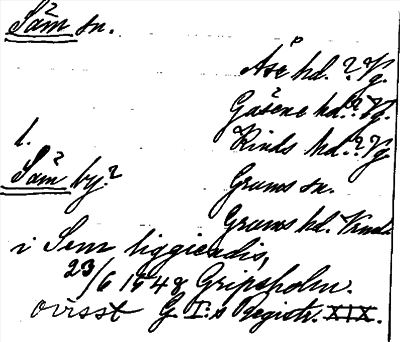 Såm sn.
Åse hd. ? Vg.
Gäsene hd. ? Vg.
l.
Kinds hd. ? Vg
Såm by. ?
Grums sn.
Grums hd. Vrml
i Sem liggiendis,
23/6 1548 Gripsholm.
ovisst G. I:s Registr. XIX.